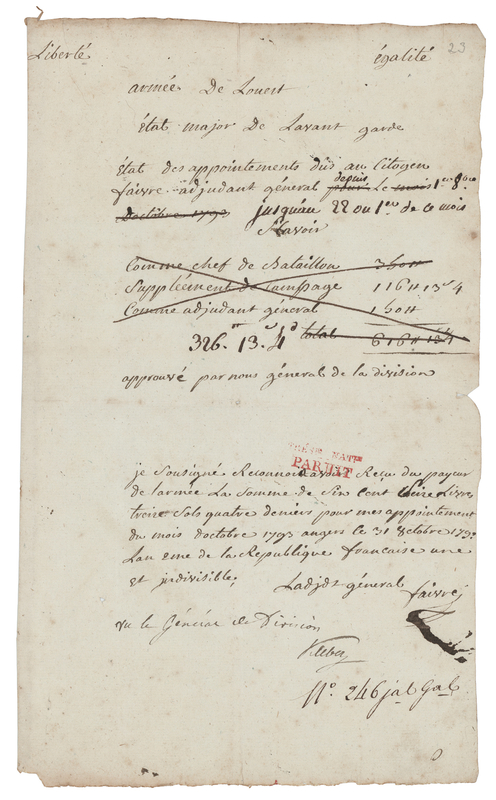 Liberté égalité 23
armée De Louest
état major De Lavant garde
état des appointements dus au Citoyen
faivre adjudant général pour depuis Le mois 1er 8bre
Doctobre 1793 jusquau 22 ou 1er de ce mois
Savoir
Comme chef de Bataillon 360 tt
Supplément de campage 116 tt 13 s 4
Comme adjudant général 150 tt
326 tt 13 s 4 d total 616 tt 13 4
approuvé par nous général de la division
TRÉSie NATle
PAR
je Soussigné Reconnois avoir Reçu du payeur
de larmée La Somme de Six Cent Seize Livres
treize Sols quatre deniers pour mes appointement
du mois doctobre 1793 angers le 31 octobre 1793
Lan 2me de la République française une
et indivisible,
Ladjdt général faivre
vu le Général de Division
Kleber
No. 246 jal Gal